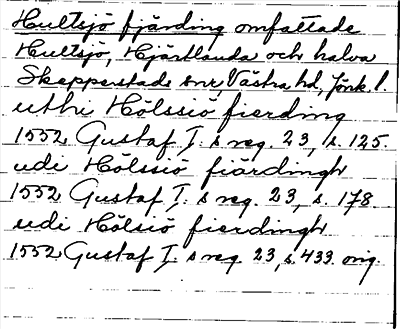 Hultsjö fjärding omfattade
Hultsjö, Hjärtlanda och halva
Skepperstads snr Västra hd, Jönk. l.
uthi Hölssiö fierding
1552 Gustaf I: s reg. 23, s. 125.
udi Hölssiö fiärdingh
1552 Gustaf I: s reg. 23, s. 178
udi Hölsiö fierdingh
1552 Gustaf I: s reg. 23, s. 433. orig.